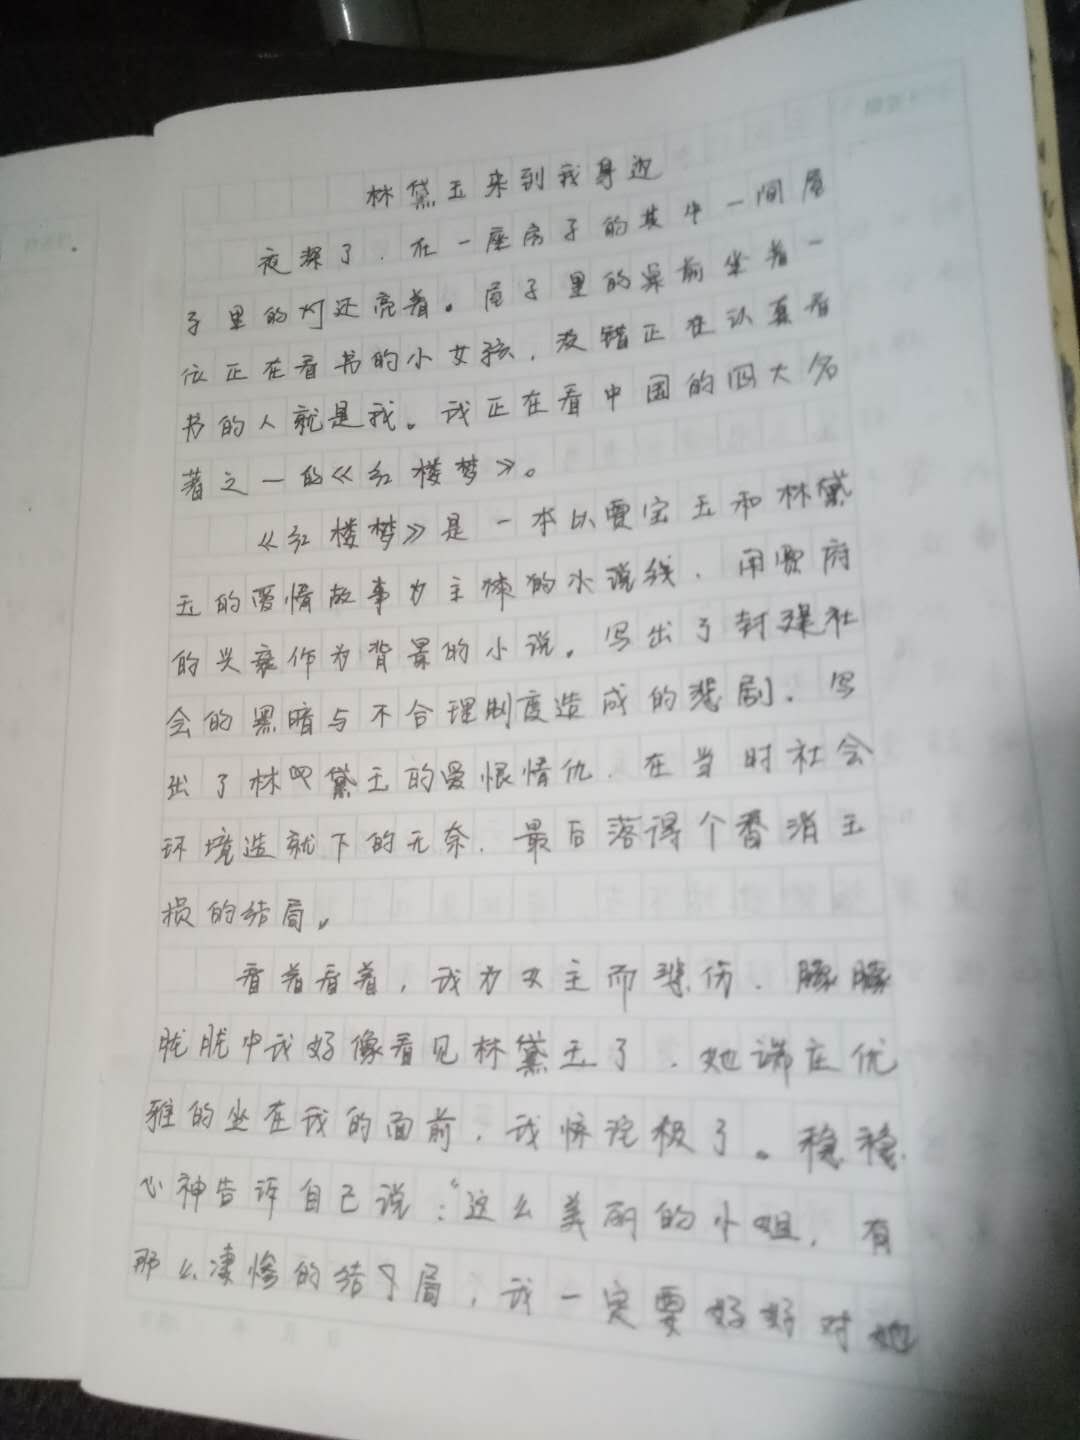 林黛玉来到我身边
夜深了，在一座房子的其中一间屋
子里的灯还亮着。屋子里的桌前坐着一
位正在看书的小女孩，没错正在认真看
书的人就是我。我正在看中国的四大名
著之一的《红楼梦》。
《红楼梦》是一本以贾宝玉和林黛
玉的爱情故事为主体的小说线，用贾府
的兴衰作为背景的小说。写出了封建社
会的黑暗与不合理制度造成的悲剧，写
出了林黛玉的爱恨情仇，在当时社会
环境造就下的无奈，最后落得个香消玉
损的结局。
看着看着，我为女主而悲伤，朦朦
胧胧中我好像看见林黛玉了，她端庄优
雅的坐在我的面前，我惊诧极了。稳稳
心神告诉自己说：“这么美丽的小姐，有
那么凄惨的结局，我一定要好好对她